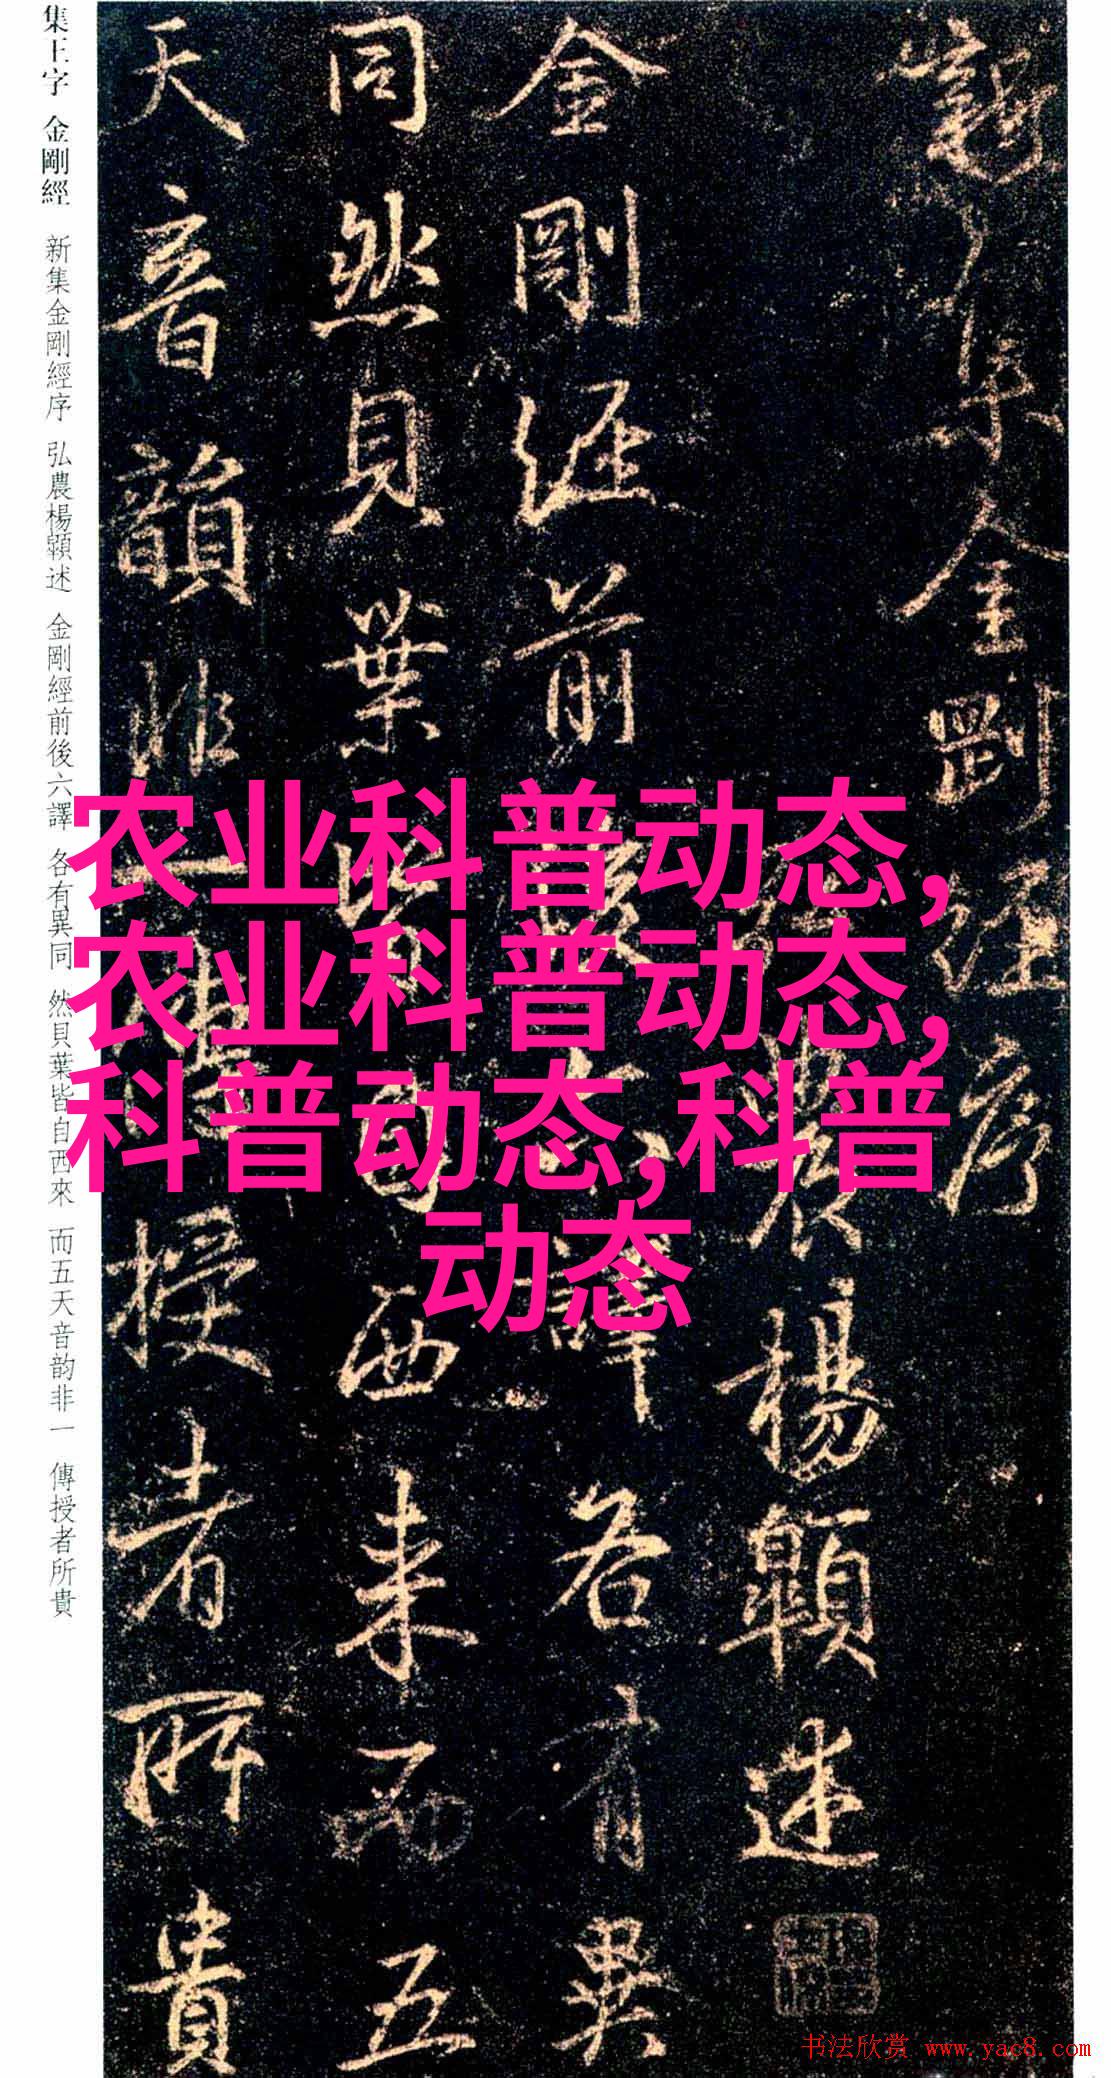 新集金剛經序
弘農楊顗述
金剛經前後六譯各有異
同然貝葉皆自西來而五
天音韻非一傳授者所貴
集王字 金剛經 新集金剛經序 弘農楊顗述 金剛經前後六譯 各有異同 然貝葉皆自西來 而五天音韵非一 傳授者所貴
农业科普动态,
农业科普动态,
科普动态,科普
动态
书法欣赏 www.yac8.com